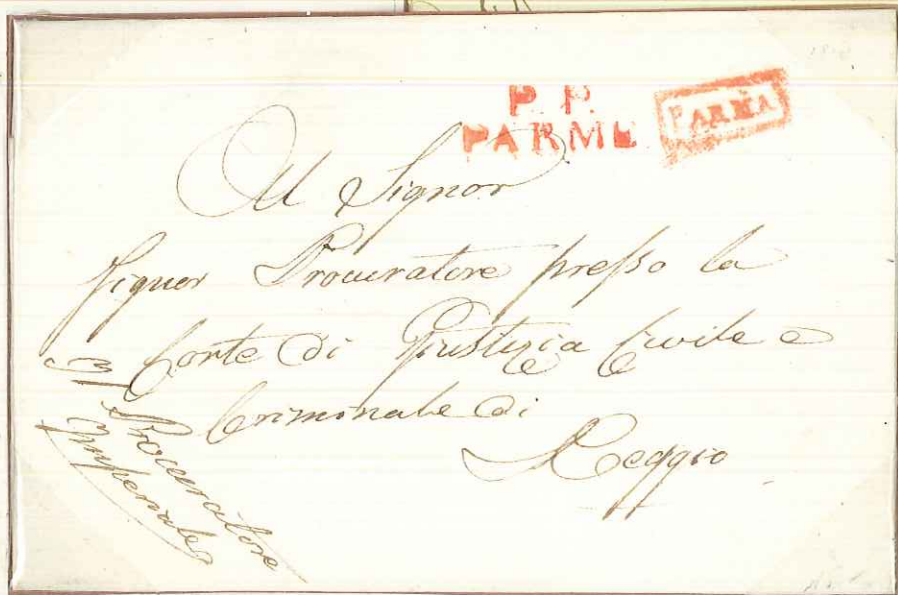 P. P.
PARME
PARMA
Al Signor
Signor Procuratore presso la
Corte di Giustizia Civile e
Criminale di
Reggio
Il Procuratore
Imperiale